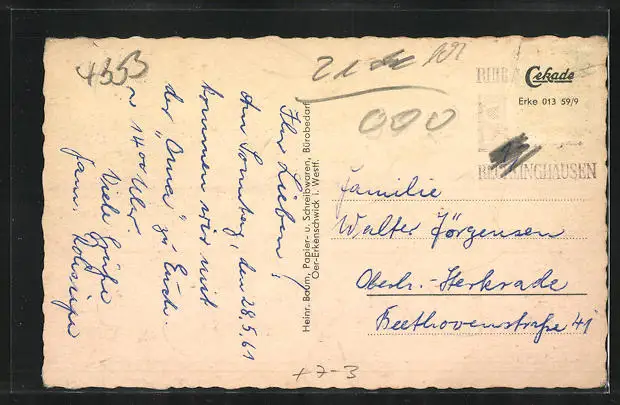 +3553
Ihr Lieben!
Am Sonntag, den 28.5.61
kommen wir mit
der „Oma" zu Euch.
≈ 14⁰⁰ Uhr.
Viele Grüße
Fam.
Heinr. Baum, Papier- u. Schreibwaren, Bürobedarf
Oer-Erkenschwick i. Westf.
21
000
RUHR
RECKLINGHAUSEN
Cekade
Erke 013 59/9
Familie
Walter Jörgensen
Oberh.-Sterkrade
Beethovenstraße 41
+7-3